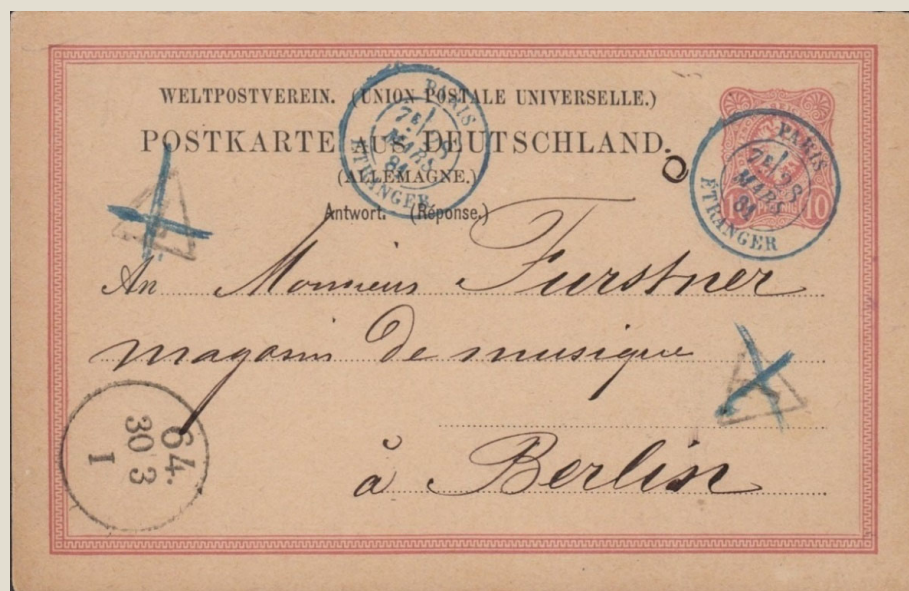 WELTPOSTVEREIN. (UNION POSTALE UNIVERSELLE.)
POSTKARTE AUS DEUTSCHLAND.
(ALLEMAGNE.)
Antwort. (Réponse.)
PARIS
7E 1
28
MARS
84
ÉTRANGER
PARIS
7E 1
28
MARS
84
ÉTRANGER
10 10
An Monsieur Furstner
magasin de musique
à Berlin
64.
30 3
I